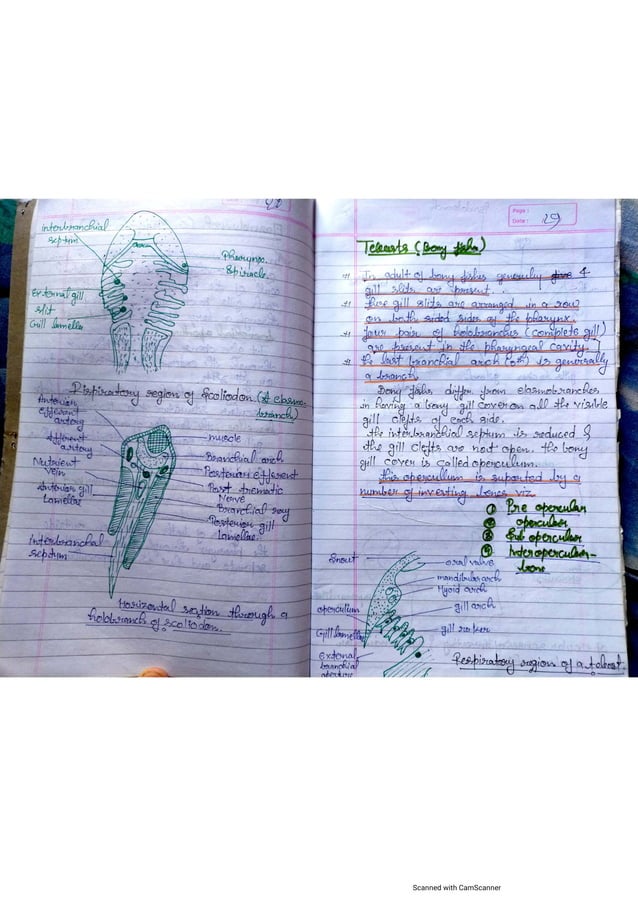 interbranchial
septum
Pharynx.
Spiracle.
External gill
slit
Gill lamellae
Respiratory region of Scoliodon (A elasmo-
branch)
Anterior
efferent
artery
Afferent
artery
Nutrient
vein
Anterior gill
Lamellae
Interbranchial
septum
muscle
Branchial arch
Posterior efferent
Post trematic
Nerve
Branchial ray
Posterior gill
Lamellae.
Horizontal section through a
holobranch of scoliodon.
Page :
Date : 29
Teleosts (Bony fishes)
In adult of bony fishes generully 4
gill slits are present.
These gill slits are arranged in a row
on both sided sides of the pharynx.
Four pair of holobranches (complete gill)
are present in the pharyngeal cavity.
the last branchial arch (5th) is generally
a branch.
Bony fishes differ from elasmobranches
in having a bony gill cover on all the visible
gill clefts of each side.
the interbranchial septum is reduced &
the gill clefts are not open. the bony
gill cover is called operculum.
this operculum is suported by a
number of investing bones viz
① Pre opercular
② opercular
③ Sub opercular
④ Interopercular-
bone
Snout
oral valve
mandibular arch
Hyoid arch
operculum
gill arch
Gill lamellae
gill raker
External
branchial
aperture
Respiratory region of a teleost.
Scanned with CamScanner